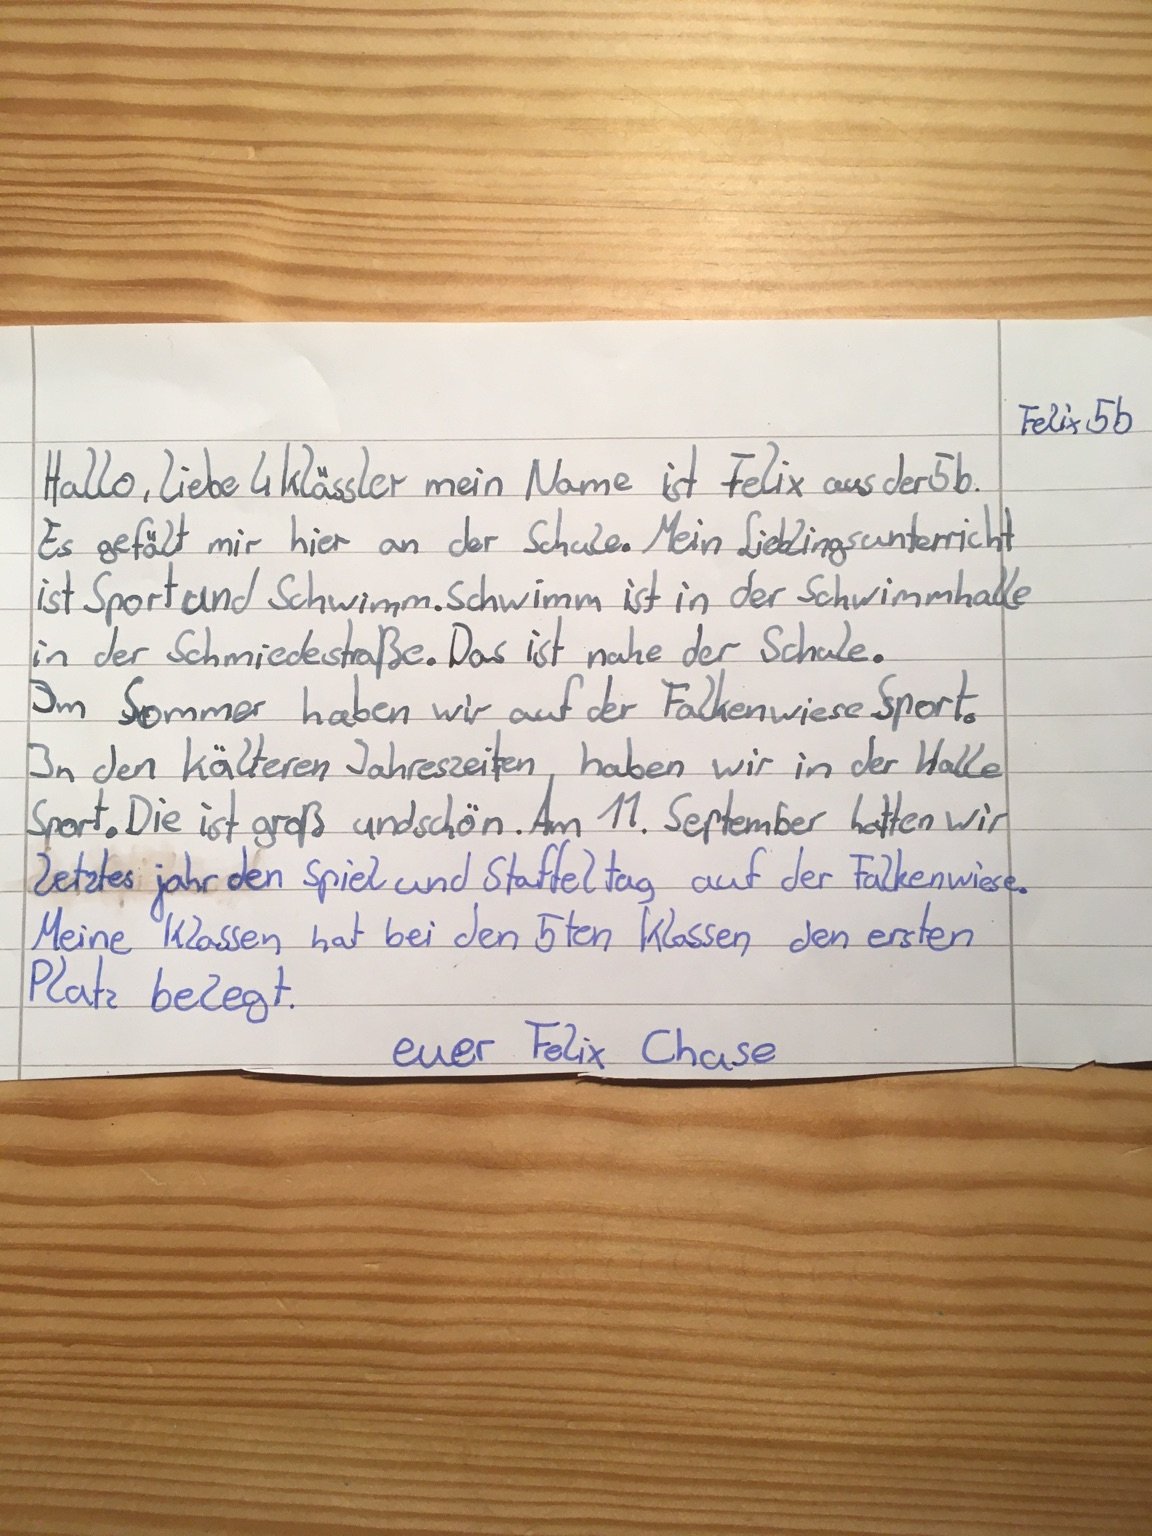 Felix 5b
Hallo, liebe 4klässler mein Name ist Felix aus der 5b.
Es gefält mir hier an der Schule. Mein Lieblingsunterricht
ist Sport und Schwimm. Schwimm ist in der Schwimmhalle
in der Schmiedestraße. Das ist nahe der Schule.
Im Sommer haben wir auf der Falkenwiese Sport.
In den kälteren Jahreszeiten, haben wir in der Halle
Sport. Die ist groß und schön. Am 11. September hatten wir
letztes jahr den Spiel und Staffeltag auf der Falkenwiese.
Meine Klassen hat bei den 5ten Klassen den ersten
Platz belegt.
euer Felix Chase